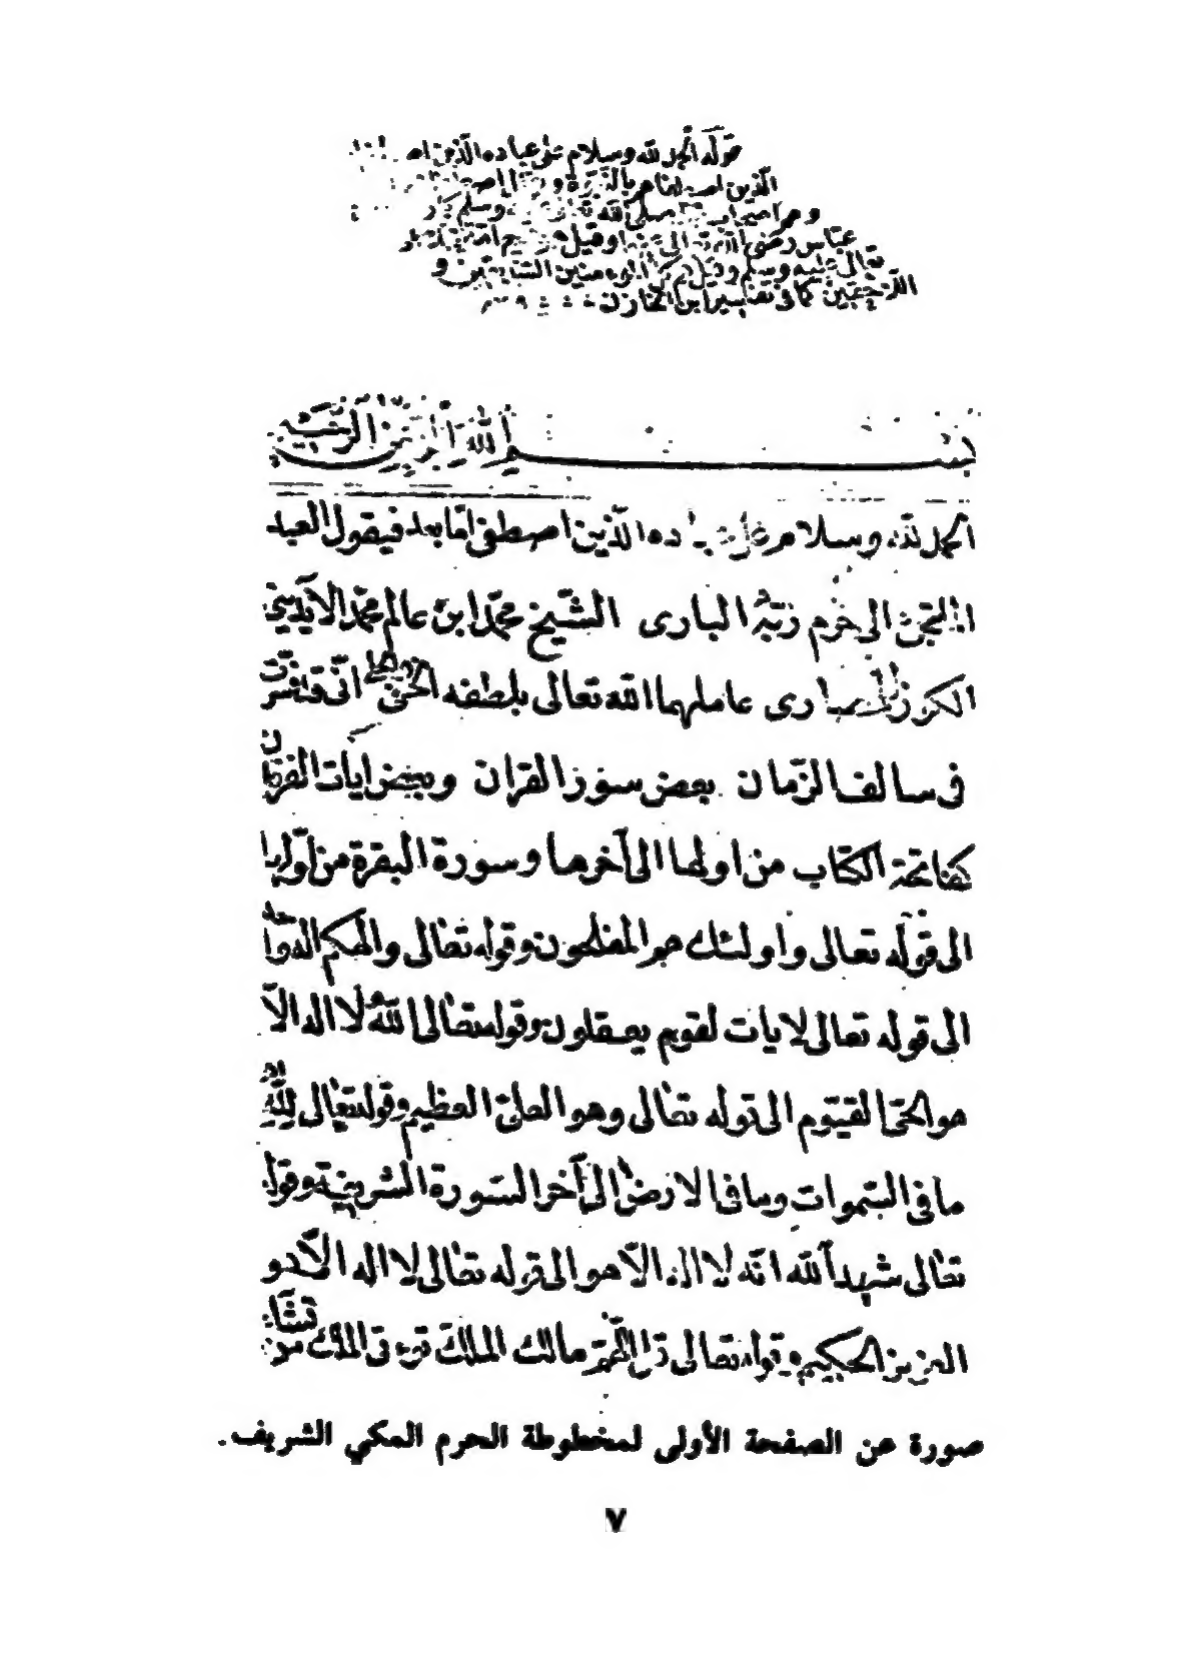 قوله الحمد لله وسلام على عباده الذين
الذين
صلى الله وسلم
عباس رضى وقيل
تعالى عليه وسلم وقيل هم كل المؤمنين السابقين و
كما فى تفسير ابن الخازن
بسم الله الرحمن الرحيم
الحمد لله وسلام على عباده الذين اصطفى امّا بعد فيقول العبد
الملتجئ الى كرم ربّه البارى الشّيخ محمّد ابن عالم محمّد الآيدينى
الكوزلحصارى عاملهما الله تعالى بلطفه الخفىّ انّى قد فسّرت
فى سالف الزّمان بعض سور القران وبعض ايات الفرقان
كفاتحة الكتاب من اولها الى آخرها وسورة البقرة من اوّلها
الى قوله تعالى واولئك هم المفلحون وقوله تعالى والهكم اله واحد
الى قوله تعالى لايات لقوم يعقلون وقوله تعالى اللّه لا اله الّا
هو الحىّ القيّوم الى قوله تعالى وهو العلىّ العظيم وقوله تعالى للّه
ما فى السّموات وما فى الارض الى آخر السّورة الشريفة وقوله
تعالى شهد الله انّه لا اله الّا هو الى قوله تعالى لا اله الّا هو
العزيز الحكيم وقوله تعالى قل اللّهمّ مالك الملك تؤتى الملك من تشاء
صورة عن الصفحة الأولى لمخطوطة الحرم المكي الشريف.
٧